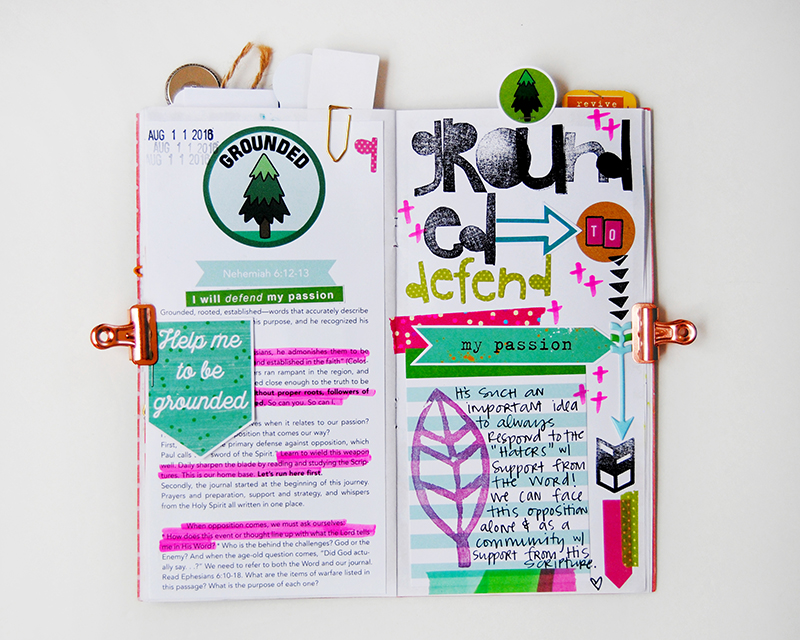 AUG 1 1 2016
AUG 1 1 2016
AUG 1 1 2016
GROUNDED
Nehemiah 6:12-13
I will defend my passion
Grounded, rooted, established—words that accurately describe
his purpose, and he recognized his
Help me
to be
grounded
sians, he admonishes them to be
and established in the faith" (Colos-
ers ran rampant in the region, and
ed close enough to the truth to be
without proper roots, followers of
ed. So can you. So can I.
ves when it relates to our passion?
position that comes our way?
First, primary defense against opposition, which
Paul calls sword of the Spirit. Learn to wield this weapon
well. Daily sharpen the blade by reading and studying the Scrip-
tures. This is our home base. Let's run here first.
Secondly, the journal started at the beginning of this journey.
Prayers and preparation, support and strategy, and whispers
from the Holy Spirit all written in one place.
When opposition comes, we must ask ourselves:
"How does this event or thought line up with what the Lord tells
me in His Word?" Who is behind the challenges? God or the
Enemy? And when the age-old question comes, "Did God actu-
ally say. . .?" We need to refer to both the Word and our journal.
Read Ephesians 6:10-18. What are the items of warfare listed in
this passage? What is the purpose of each one?
revive
ground
ed
TO
defend
my passion
It's such an
important idea
to always
respond to the
"Haters" w/
support from
the Word!
We can face
this opposition
alone & as a
community w/
support from His
Scripture.